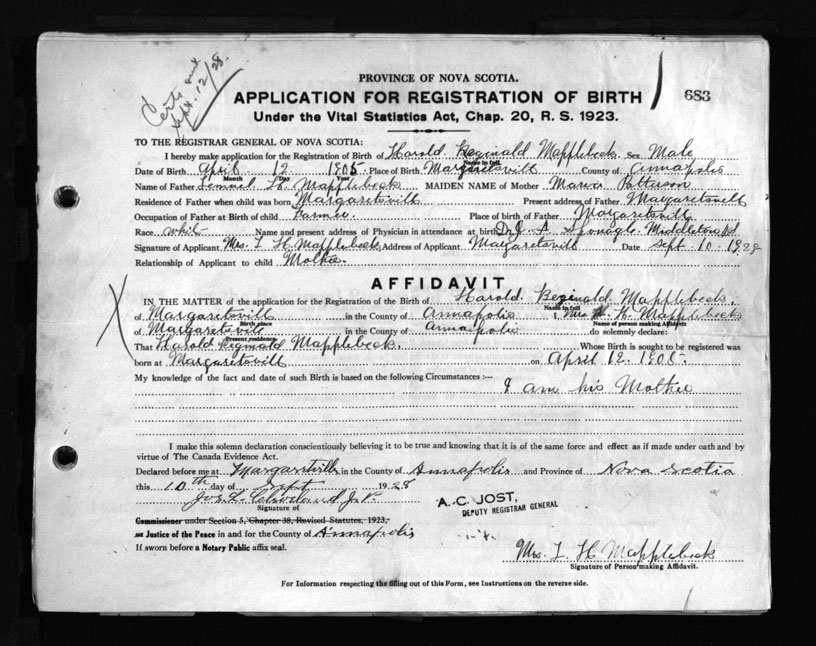 Certs sent
Sept. 12/28.
PROVINCE OF NOVA SCOTIA.
APPLICATION FOR REGISTRATION OF BIRTH
683
Under the Vital Statistics Act, Chap. 20, R. S. 1923.
TO THE REGISTRAR GENERAL OF NOVA SCOTIA:
I hereby make application for the Registration of Birth of Harold Reginald Mapplebeck Sex Male
Name in full
Date of Birth April 12 1905. Place of Birth Margaretsvill County of Annapolis
Month Day Year
Name of Father Lemuel H. Mapplebeck MAIDEN NAME of Mother Maria Patterson
Residence of Father when child was born Margaretsvill Present address of Father Margaretsvill
Occupation of Father at Birth of child Farmer. Place of birth of Father Margaretsvill
Race whit Name and present address of Physician in attendance at birth Dr. A Sponagle Middleton NS
Signature of Applicant Mrs. L H Mapplebeck Address of Applicant Margaretsvill Date Sept 10 1928
Relationship of Applicant to child Mother.
AFFIDAVIT
IN THE MATTER of the application for the Registration of the Birth of Harold Reginald Mapplebeck.
Name in full
of Margaretsvill in the County of Annapolis I, Mrs L. H. Mapplebeck
Birth place Name of person making Affidavit
of Margaretsvill in the County of Annapolis do solemnly declare:
Present residence
That Harold Reginald Mapplebeck. Whose Birth is sought to be registered was
born at Margaretsvill on April 12 1905.
My knowledge of the fact and date of such Birth is based on the following Circumstances :—
I am his Mother
I make this solemn declaration conscientiously believing it to be true and knowing that it is of the same force and effect as if made under oath and by
virtue of The Canada Evidence Act.
Declared before me at Margaretsville in the County of Annapolis and Province of Nova Scotia
this 10th day of Sept 1928
Jos L. Cleveland J.P.
Signature of
A. C. JOST,
DEPUTY REGISTRAR GENERAL
Commissioner under Section 5, Chapter 38, Revised Statutes, 1923,
or Justice of the Peace in and for the County of Annapolis
If sworn before a Notary Public affix seal.
Mrs. L H Mapplebeck
Signature of Person making Affidavit.
For Information respecting the filling out of this Form, see Instructions on the reverse side.